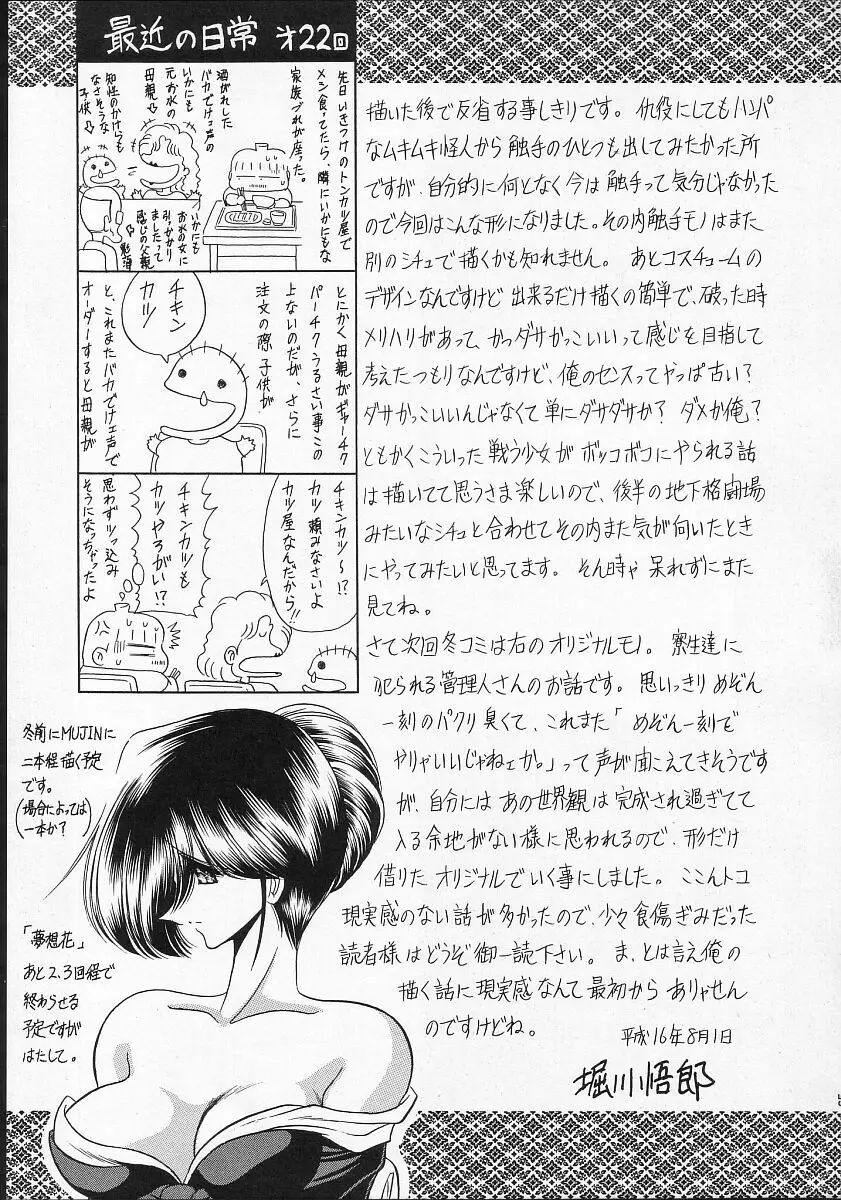 最近の日常 オ22回
先日いきつけのトンカツ屋で
メシ食ってたら、隣にいかにもな
家族づれが座った。
酒がれした
バカでけェ声の
いかにも
元お水の
母親
知性のかけらも
なさそうな
子供
いかにも
お水の女に
引っかかり
ましたって
感じの父親
とにかく母親がギャーチク
パーチクうるさい事この
上ないのだが、さらに
注文の際子供が
チキン
カツ
と、これまたバカでけェ声で
オーダーすると母親が
チキンカツ〜!?
カツ頼みなさいよ
カツ屋なんだから!!
チキンカツも
カツやろがい!?
思わずツッ込み
そうになっちゃったよ
描いた後で反省する事しきりです。仇役にしてもハンパ
なムキムキ怪人から触手のひとつも出してみたかった所
ですが、自分的に何となく今は触手って気分じゃなかった
ので今回はこんな形になりました。その内触手モノはまた
別のシチュで描くかも知れません。あとコスチュームの
デザインなんですけど出来るだけ描くの簡単で、破った時
メリハリがあって、かつダサかっこいいって感じを目指して
考えたつもりなんですけど、俺のセンスってやっぱ古い?
ダサかっこいいんじゃなくて単にダサダサか?ダメか俺?
ともかくこういった戦う少女がボッコボコにやられる話
は描いてて思うさま楽しいので、後半の地下格闘場
みたいなシチュと合わせてその内また気が向いたとき
にやってみたいと思ってます。そん時ゃ呆れずにまた
見てね。
さて次回冬コミは右のオリジナルモノ。寮生達に
犯られる管理人さんのお話です。思いっきりめぞん
一刻のパクリ臭くて、これまた「めぞん一刻で
やりゃいいじゃねェか。」って声が聞こえてきそうです
が、自分にはあの世界観は完成され過ぎてて
入る余地がない様に思われるので、形だけ
借りたオリジナルでいく事にしました。ここんトコ
現実感のない話が多かったので、少々食傷ぎみだった
読者様はどうぞ御一読下さい。ま、とは言え俺の
描く話に現実感なんて最初からありゃせん
のですけどね。
平成16年8月1日
堀川悟郎
冬前にMUJINに
二本程描く予定
です。
(場合によっては
一本か?)
「夢想花」
あと2,3回程で
終わらせる
予定ですが
はたして。